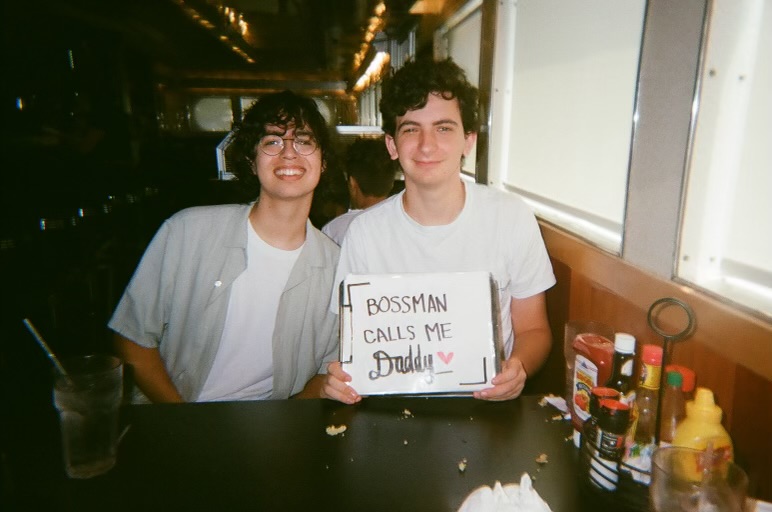 BOSSMAN
CALLS ME
Daddy